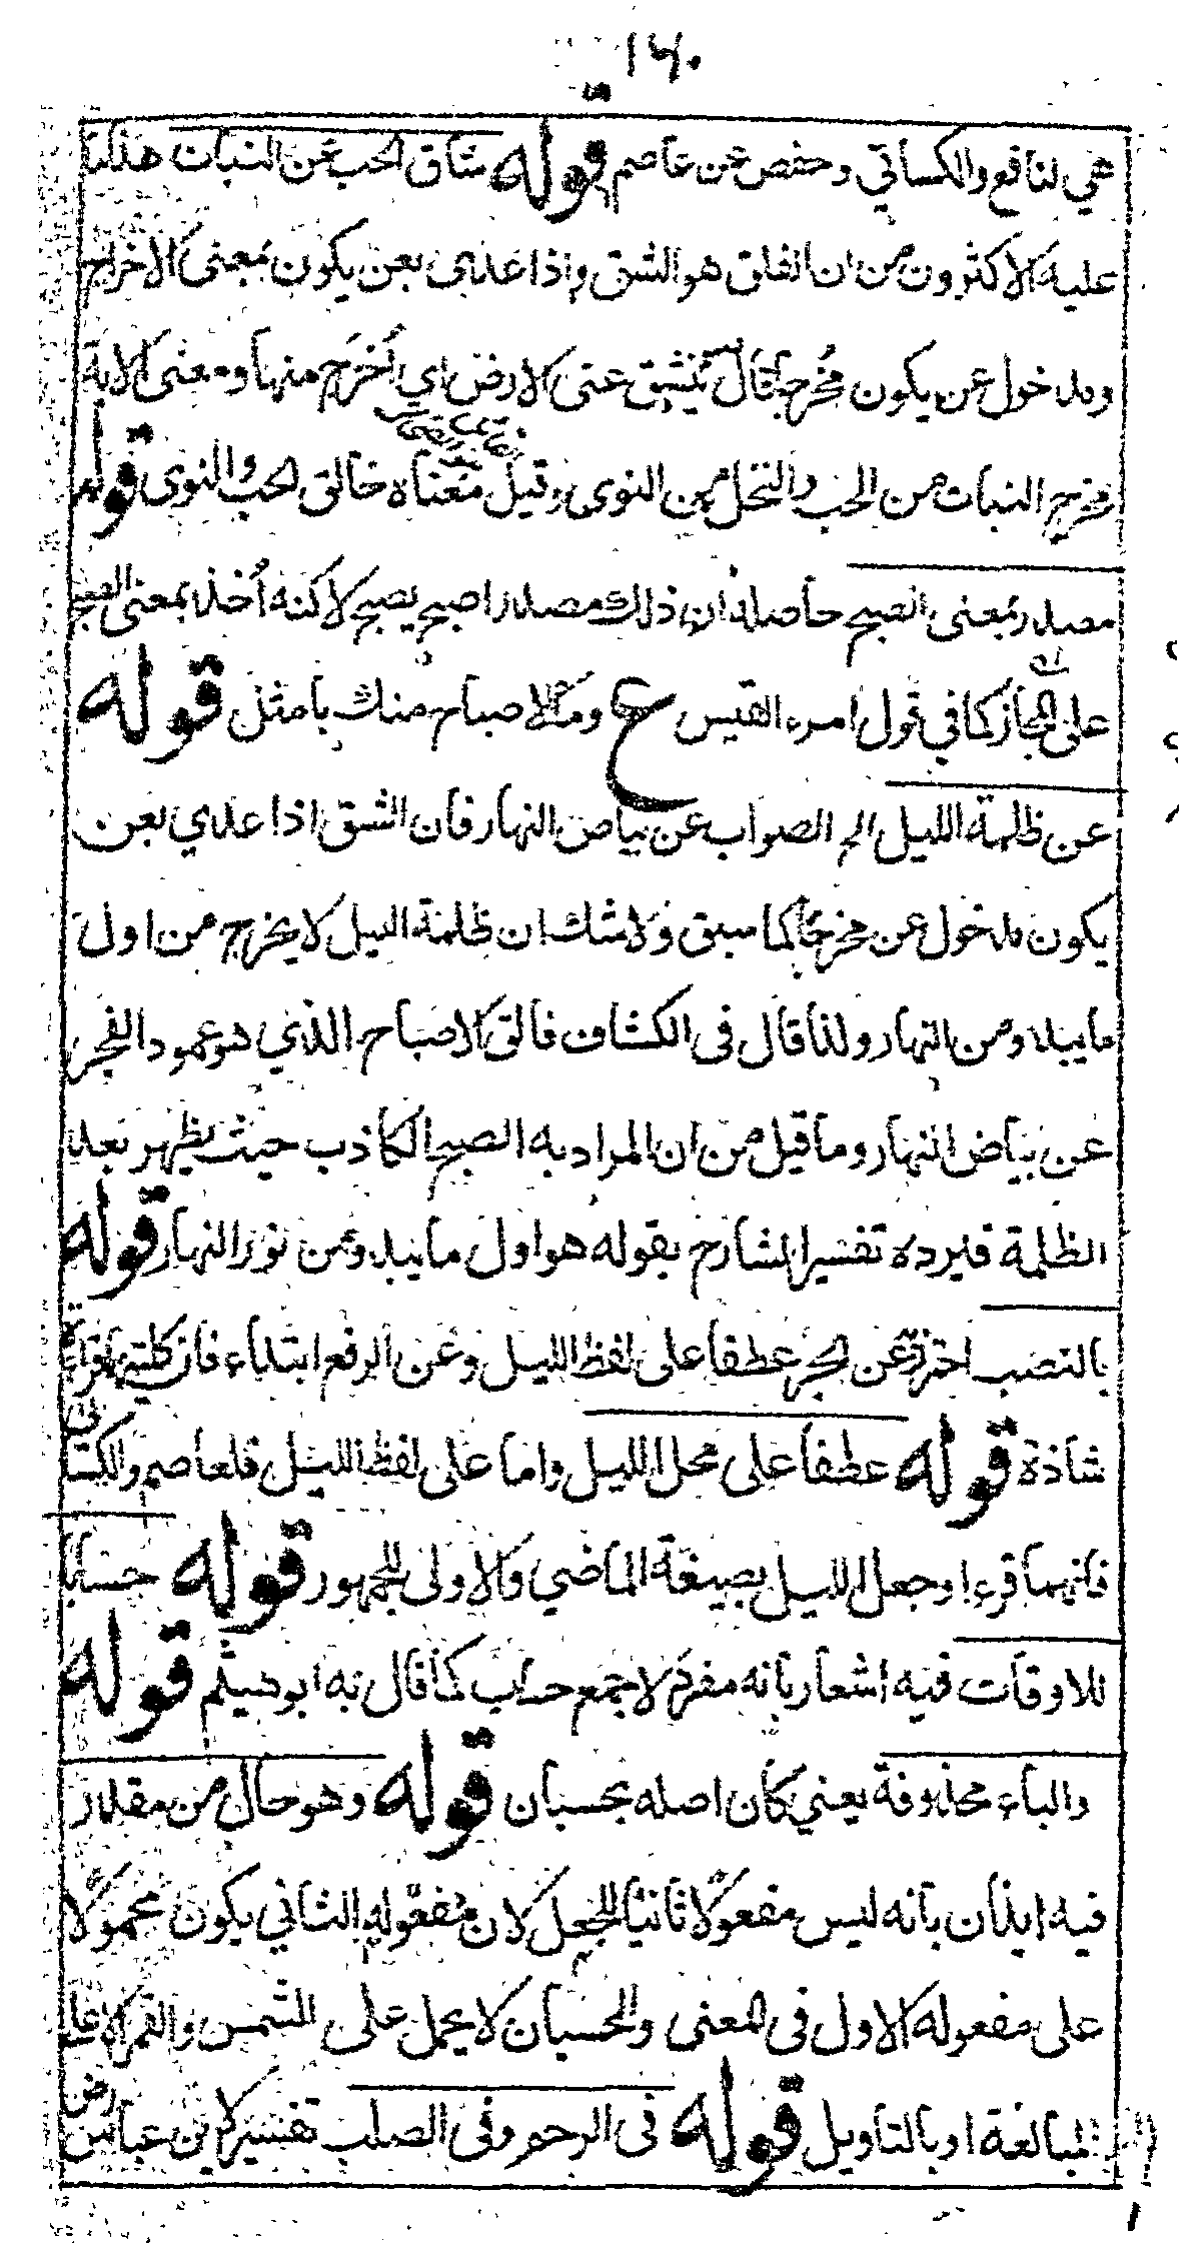 ١٦٠
هي لنافع والكسائي وحفص عن عاصم قوله شاق الحب عن النبات هذا ما
عليه الاكثرون من ان الفلق هو الشق واذا عدي بعن يكون بمعنى الاخراج
ومدخول عن يكون مخرجا يقال ينشق عنى الارض اي اُخرَج منها ومعنى الاية
مخرج النبات من الحب والنخل من النوى وقيل معناه خالق الحب والنوى قوله
مصدر بمعنى الصبح حاصله ان ذلك مصدر اصبح يصبح لاكنه اُخذ بمعنى الصبح
على المجاز كما في قول امرء القيس ع وما الاصباح منك بامثل قوله
عن ظلمة الليل الخ الصواب عن بياض النهار فان الشق اذا عدي بعن
يكون مدخول عن مخرجًا كما سبق ولا شك ان ظلمة الليل لا يخرج من اول
ما يبدو من النهار ولذا قال فى الكشاف فالق الاصباح الذي هو عمود الفجر
عن بياض النهار وما قيل من ان المراد به الصبح الكاذب حيث يظهر بعد
الظلمة فيرده تفسير الشارح بقوله هو اول ما يبدو من نور النهار قوله
بالنصب احترز عن الجر عطفا على لفظ الليل وعن الرفع ابتداء فان كليهما قراءة
شاذة قوله عطفا على محل الليل واما على لفظ الليل فلعاصم والكسائي
فانهما قرءا وجعل الليل بصيغة الماضي والاولى للجمهور قوله حسابا
للاوقات فيه اشعار بانه مفرد لا جمع حساب كما قال به ابو هيثم قوله
والباء محذوفة يعني كان اصله بحسبان قوله وهو حال من مقدر
فيه ايذان بانه ليس مفعولا ثانيا للجعل لان مفعوله الثاني يكون محمولا
على مفعوله الاول فى المعنى والحسبان لا يحمل على الشمس والقمر الا على
المبالغة او بالتاويل قوله فى الرحم وفى الصلب تفسير لابن عباس رض